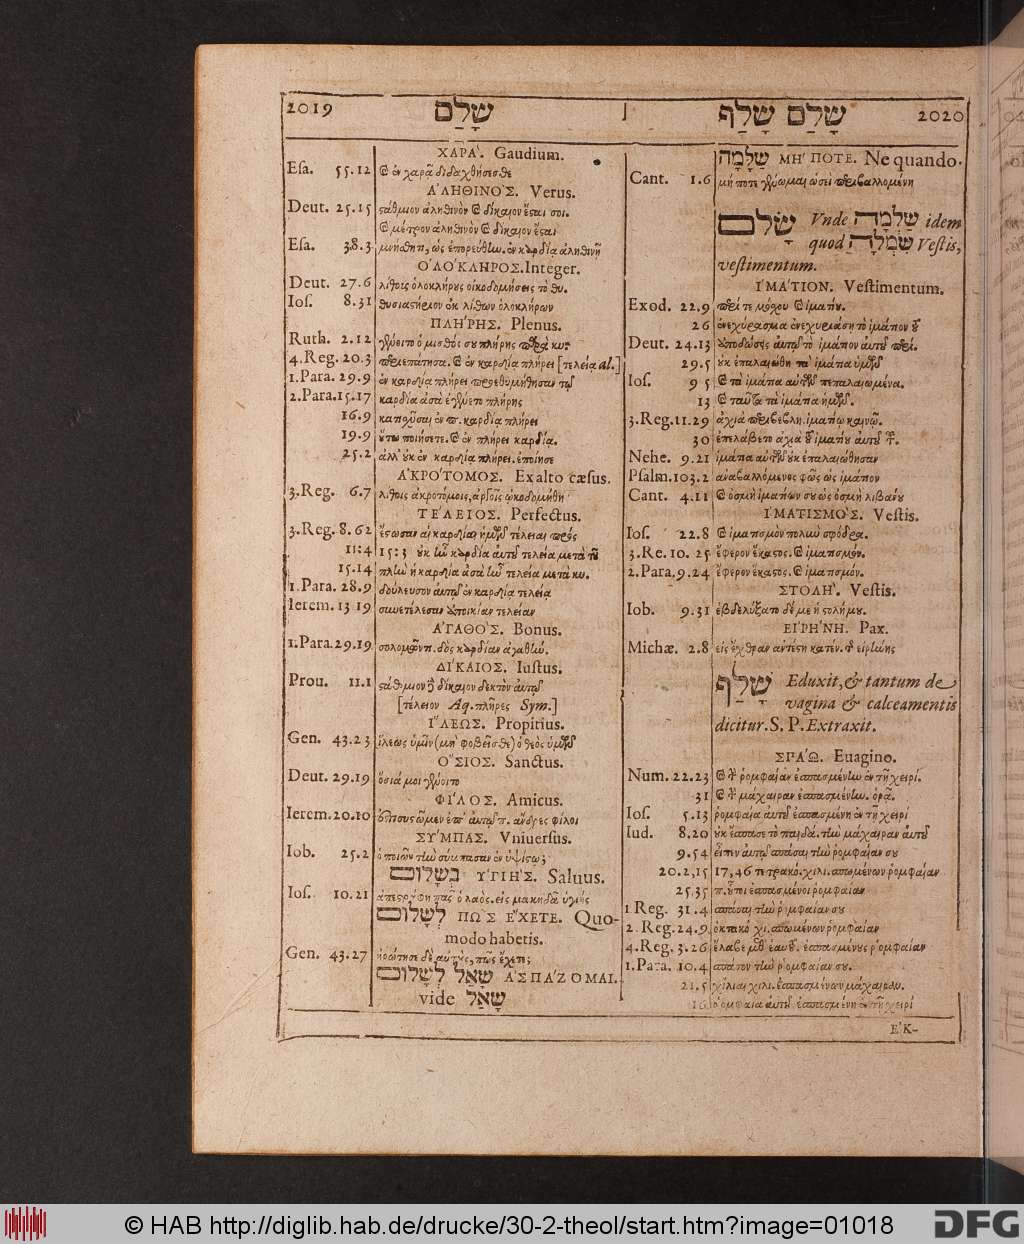 2019 שָׁלַם
שָׁלַם שָׁלַף 2020
ΧΑΡΑ΄. Gaudium.
Esa. 55.12 ἐν χαρᾷ διδαχθήσεσθε
ἈΛΗΘΙΝΟ΄Σ. Verus.
Deut. 25.15 στάθμιον ἀληθινὸν δίκαιον ἔσται σοι.
μέτρον ἀληθινὸν δίκαιον ἔσται
Esa. 38.3 μνήσθητι, ὡς ἐπορεύθην. ἐν καρδίᾳ ἀληθινῇ
ὉΛΟ΄ΚΛΗΡΟΣ. Integer.
Deut. 27.6 λίθοις ὁλοκλήρους οἰκοδομήσεις τὸ θυ.
Ios. 8.31 θυσιαστήριον ἐκ λίθων ὁλοκλήρων
ΠΛΗ΄ΡΗΣ. Plenus.
Ruth. 2.12 γένοιτο ὁ μισθός σου πλήρης παρὰ κυ.
4.Reg. 20.3 περιεπάτησα. ἐν καρδίᾳ πλήρει [τελείᾳ al.]
1.Para. 29.9 ἐν καρδίᾳ πλήρει προεθυμήθησαν τῷ
2.Para. 15.17 καρδία ἀσὰ ἐγένετο πλήρης
16.9 ἐν π. καρδίᾳ πλήρει
19.9 οὕτω ποιήσετε. ἐν πλήρει καρδίᾳ.
25.2 ἀλλ' οὐκ ἐν καρδίᾳ πλήρει. ἐποίησε
ἈΚΡΟ΄ΤΟΜΟΣ. Ex alto cæsus.
3.Reg. 6.7 λίθοις ἀκροτόμοις, ἀργοῖς ᾠκοδομήθη
ΤΕ΄ΛΕΙΟΣ. Perfectus.
3.Reg. 8.62 ἔστωσαν αἱ καρδίαι ἡμῶν τέλειαι πρὸς
11.4 15:3 οὐκ ἦν καρδία αὐτοῦ τελεία μετὰ τοῦ
15.14 πλὴν ἡ καρδία ἀσὰ ἦν τελεία μετὰ κυ.
1.Para. 28.9 δούλευσον αὐτῷ ἐν καρδίᾳ τελείᾳ
Ierem. 13 19 συνετέλεσαν ἀποικίαν τελείαν
ἈΓΑΘΟ΄Σ. Bonus.
1.Para. 29.19 σολομῶν π. δὸς καρδίαν ἀγαθήν.
ΔΙ΄ΚΑΙΟΣ. Iustus.
Prou. 11.1 στάθμιον δὲ δίκαιον δεκτὸν αὐτῷ
[τέλειον Aq. πλῆρες Sym.]
Ἵ΄ΛΕΩΣ. Propitius.
Gen. 43.23 ἵλεως ὑμῖν (μὴ φοβεῖσθε) ὁ θεὸς ὑμῶν
Ὅ΄ΣΙΟΣ. Sanctus.
Deut. 29.19 ὅσιά μοι γένοιτο
ΦΙ΄ΛΟΣ. Amicus.
Ierem. 20.10 ἄνδρες φίλοι
ΣΥ΄ΜΠΑΣ. Vniuersus.
Iob. 25.2 ὁ ποιῶν τὴν σύμπασαν ἐν ὑψίστῳ;
בְּשָׁלוֹם ὙΓΙΗ΄Σ. Saluus.
Ios. 10.21 ἀπεστράφη πᾶς ὁ λαὸς. εἰς μακηδὰ ὑγιὴς
לְשָׁלוֹם ΠΩ΄Σ ἘΧΕΤΕ. Quo-
modo habetis.
Gen. 43.27 ἠρώτησε δὲ αὐτοὺς, πῶς ἔχετε;
שָׁאַל לְשָׁלוֹם ἈΣΠΑ΄ΖΟΜΑΙ.
vide שָׁאַל
שַׁלָּמָה ΜΗ΄ΠΟΤΕ. Ne quando.
Cant. 1.6 μή ποτε γένωμαι ὡσεὶ περιβαλλομένη
שָׂלַם Vnde שַׂלְמָה idem
quod שִׂמְלָה Vestis,
vestimentum.
ἹΜΑ΄ΤΙΟΝ. Vestimentum.
Exod. 22.9 περί τε μόσχου ἱματίου.
26 ἐνεχύρασμα ἐνεχυράσῃ τὸ ἱμάτιον τοῦ
Deut. 24.13 ἀποδώσεις αὐτῷ τὸ ἱμάτιον αὐτοῦ περί.
29.5 οὐκ ἐπαλαιώθη τὰ ἱμάτια ὑμῶν
Ios. 9 5 τὰ ἱμάτια αὐτῶν πεπαλαιωμένα.
13 ταῦτα τὰ ἱμάτια ἡμῶν.
3.Reg. 11.29 ἀχιὰ περιβεβλη. ἱματίῳ καινῷ.
30 ἐπελάβετο ἀχιὰ τοῦ ἱματίου αὐτοῦ τ.
Nehe. 9.21 ἱμάτια αὐτῶν οὐκ ἐπαλαιώθησαν
Psalm. 103.2 ἀναβαλλόμενος φῶς ὡς ἱμάτιον
Cant. 4.11 ὀσμὴ ἱματίων σου ὡς ὀσμὴ λιβάνου
ἹΜΑΤΙΣΜΟ΄Σ. Vestis.
Ios. 22.8 ἱματισμὸν πολὺν σφόδρα.
3.Re. 10. 25 ἔφερον ἕκαστος. ἱματισμόν.
2.Para. 9.24 ἔφερον ἕκαστος. ἱματισμόν.
ΣΤΟΛΗ΄. Vestis.
Iob. 9.31 ἐβδελύξατο δέ με ἡ στολή μου.
ΕἸΡΗ΄ΝΗ. Pax.
Michæ. 2.8 εἰς ἔχθραν ἀντέστη κατέν. τ εἰρήνης
שָׁלַף Eduxit, & tantum de
vagina & calceamentis
dicitur. S. P. Extraxit.
ΣΠΑ΄Ω. Euagino.
Num. 22.23 τ ῥομφαίαν ἐσπασμένην ἐν τῇ χειρί.
31 τ μάχαιραν ἐσπασμένην. ὁρᾷ.
Ios. 5.13 ῥομφαία αὐτοῦ ἐσπασμένη ἐν τῇ χειρί
Iud. 8.20 οὐκ ἔσπασε τὸ παιδά. τὴν μάχαιραν αὐτοῦ
9.54 εἶπεν αὐτῷ σπάσαι τὴν ῥομφαίαν σου
20.2,15 17,46 τετρακό. χιλι. σπωμένων ῥομφαίαν
25.35 π. οὗτοι ἐσπασμένοι ῥομφαίαν
1 Reg. 31.4 σπάσαι τὴν ῥομφαίαν σου
2. Reg. 24.9 ὀκτακό χι. σπωμένων ῥομφαίαν
4.Reg. 3.26 ἔλαβε μεθ' ἑαυτοῦ. ἐσπασμένους ῥομφαίαν
1.Para. 10.4 σπάσον τὴν ῥομφαίαν σου.
21.5 χίλιαι χιλι. ἐσπασμένων μάχαιραν.
16 ῥομφαία αὐτοῦ ἐσπασμένη ἐν τῇ χειρί
ἘΚ-
© HAB http://diglib.hab.de/drucke/30-2-theol/start.htm?image=01018
DFG